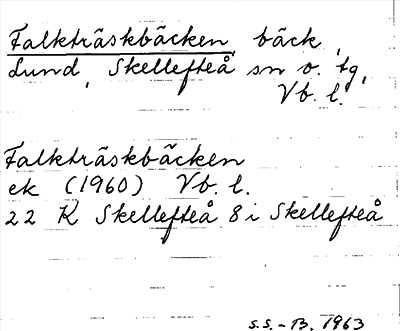 Falkträskbäcken, bäck,
Lund, Skellefteå sn o. tg,
Vb. l.
Falkträskbäcken
ek (1960) Vb. l.
22 K Skellefteå 8 i Skellefteå
S.S.-B. 1963